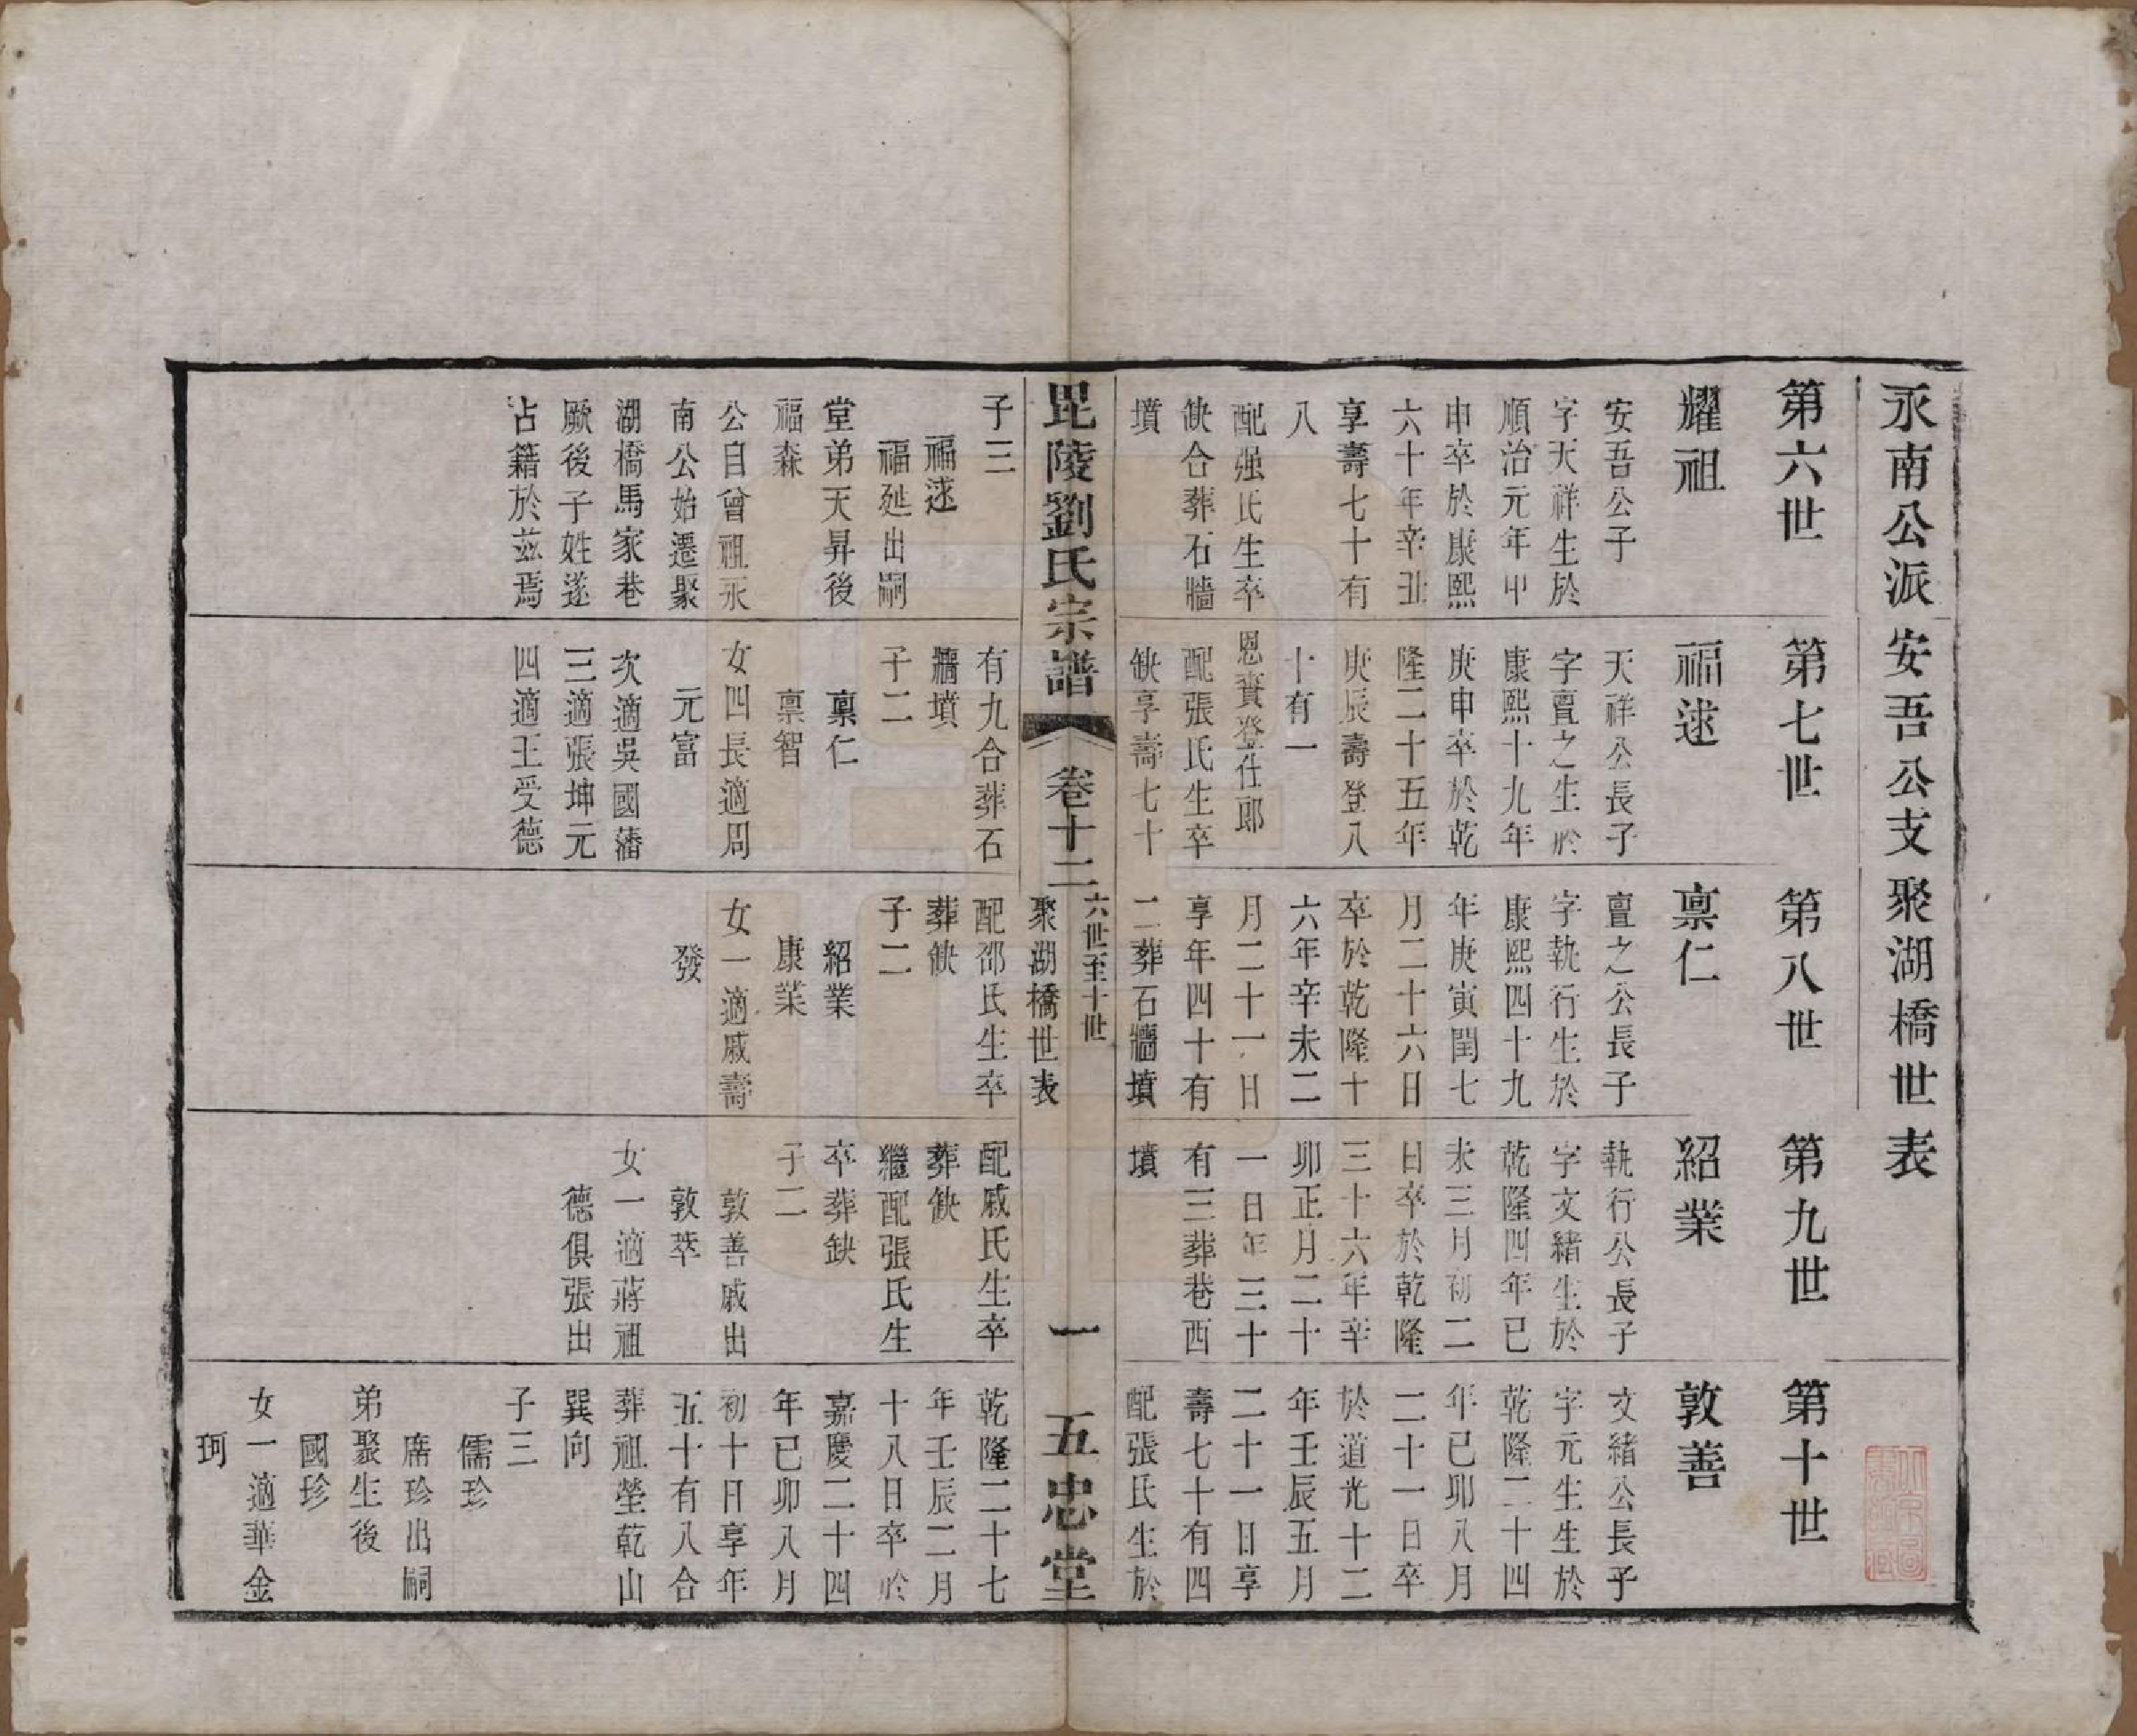 永南公派安吾公支聚湖橋世表
第六世
耀祖
安吾公子
字天祥生於
順治元年甲
申卒於康熙
六十年辛丑
享壽七十有
八
配强氏生卒
缺合葬石牆
墳
子三
福逑
福延出嗣
堂弟天昇後
福森
公自曾祖永
南公始遷聚
湖橋馬家巷
厥後子姓遂
占籍於茲焉
第七世
福逑
天祥公長子
字亶之生於
康熙十九年
庚申卒於乾
隆二十五年
庚辰壽登八
十有一
恩賚登仕郎
配張氏生卒
缺享壽七十
有九合葬石
牆墳
子二
稟仁
稟智
女四長適周
元富
次適吳國藩
三適張坤元
四適王受德
第八世
稟仁
亶之公長子
字執行生於
康熙四十九
年庚寅閏七
月二十六日
卒於乾隆十
六年辛未二
月二十一日
享年四十有
二葬石牆墳
配邵氏生卒
葬缺
子二
紹業
康業
女一適戚壽
發
第九世
紹業
執行公長子
字文緒生於
乾隆四年已
未三月初二
日卒於乾隆
三十六年辛
卯正月二十
一日年三十
有三葬巷西
墳
配戚氏生卒
葬缺
繼配張氏生
卒葬缺
子二
敦善戚出
敦萃
女一適蔣祖
德俱張出
第十世
敦善
文緒公長子
字元生生於
乾隆二十四
年已卯八月
二十一日卒
於道光十二
年壬辰五月
二十一日享
壽七十有四
配張氏生於
乾隆二十七
年壬辰二月
十八日卒於
嘉慶二十四
年已卯八月
初十日享年
五十有八合
葬祖塋乾山
巽向
子三
儒珍
席珍出嗣
弟聚生後
國珍
女一適華金
珂
毘陵劉氏宗譜
卷十二
六世至十世
聚湖橋世表
一
五忠堂